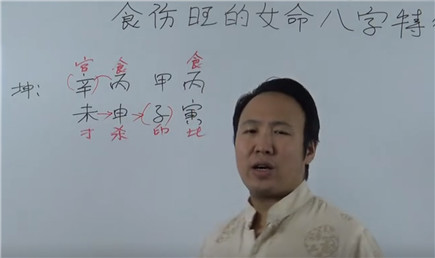 食伤旺的女命八字特
官 食 食
坤: (辛 丙 甲 丙
未→申→(子) 寅
才 杀 印 比